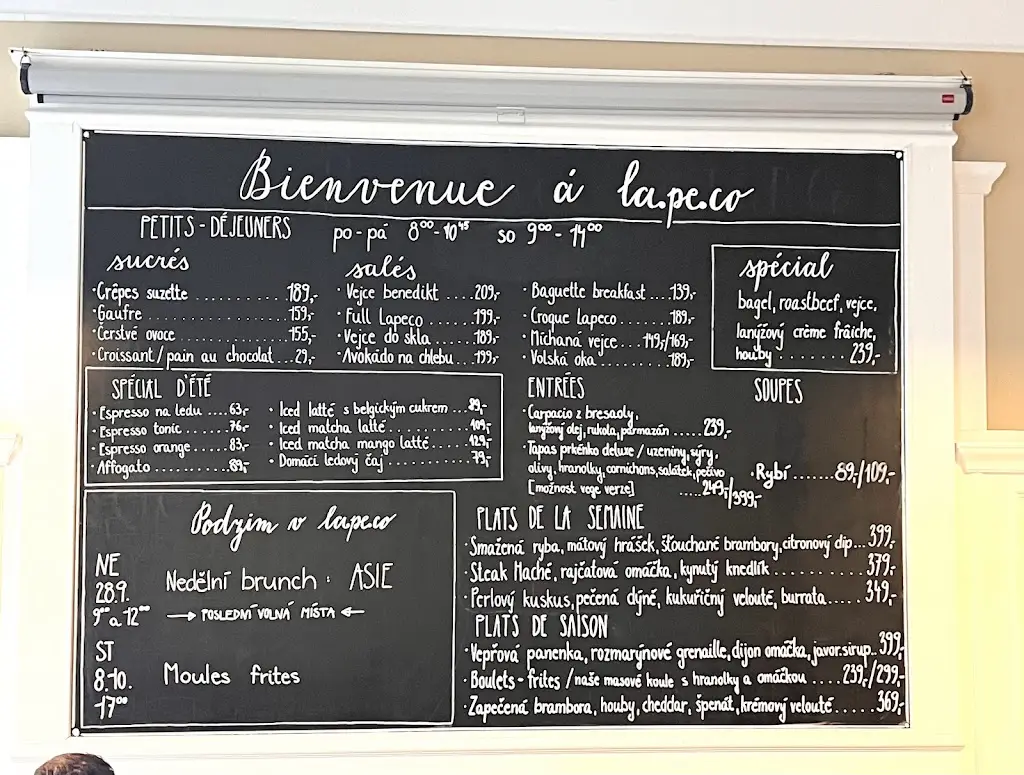 Bienvenue á la.pe.co
PETITS - DÉJEUNERS po-pá 8⁰⁰-10⁴⁵ so 9⁰⁰-14⁰⁰
sucrés
·Crêpes suzette ......... 189,-
·Gaufre ............... 159,-
·Čerstvé ovoce ......... 155,-
·Croissant/pain au chocolat ..29,-
salés
·Vejce benedikt ....209,-
·Full Lapeco ......199,-
·Vejce do skla .....189,-
·Avokádo na chlebu..199,-
·Baguette breakfast ...139,-
·Croque Lapeco .......189,-
·Míchaná vejce..149,-/169,-
·Volská oka ..........189,-
spécial
bagel, roastbeef, vejce,
lanýžový crème fraîche,
houby ........ 239,-
SPÉCIAL D'ÉTÉ
·Espresso na ledu ....63,-
·Espresso tonic ......76,-
·Espresso orange ....83,-
·Affogato ..........89,-
·Iced latté s belgickým cukrem ...89,-
·Iced matcha latté ............109,-
·Iced matcha mango latté .....129,-
·Domácí ledový čaj ..........79,-
ENTRÉES
·Carpacio z bresaoly,
lanýžový olej, rukola, parmazán .....239,-
·Tapas prkénko deluxe / uzeniny, sýry,
olivy, hranolky, cornichons, salátek, pečivo
[možnost vege verze] .....249,-/399,-
SOUPES
·Rybí ......89,-/109,-
Podzim v lapeco
NE
28.9. Nedělní brunch : ASIE
9⁰⁰ a 12⁰⁰ → POSLEDNÍ VOLNÁ MÍSTA ←
ST
8.10. Moules frites
17⁰⁰
PLATS DE LA SEMAINE
·Smažená ryba, mátový hrášek, šťouchané brambory, citronový dip...399,-
·Steak Haché, rajčatová omáčka, kynutý knedlík ..............379,-
·Perlový kuskus, pečená dýně, kukuřičný velouté, burrata.....349,-
PLATS DE SAISON
·Vepřová panenka, rozmarýnové grenaille, dijon omáčka, javor.sirup..399,-
·Boulets-frites / naše masové koule s hranolky a omáčkou ....239,-/299,-
·Zapečená brambora, houby, cheddar, špenát, krémový velouté......369,-